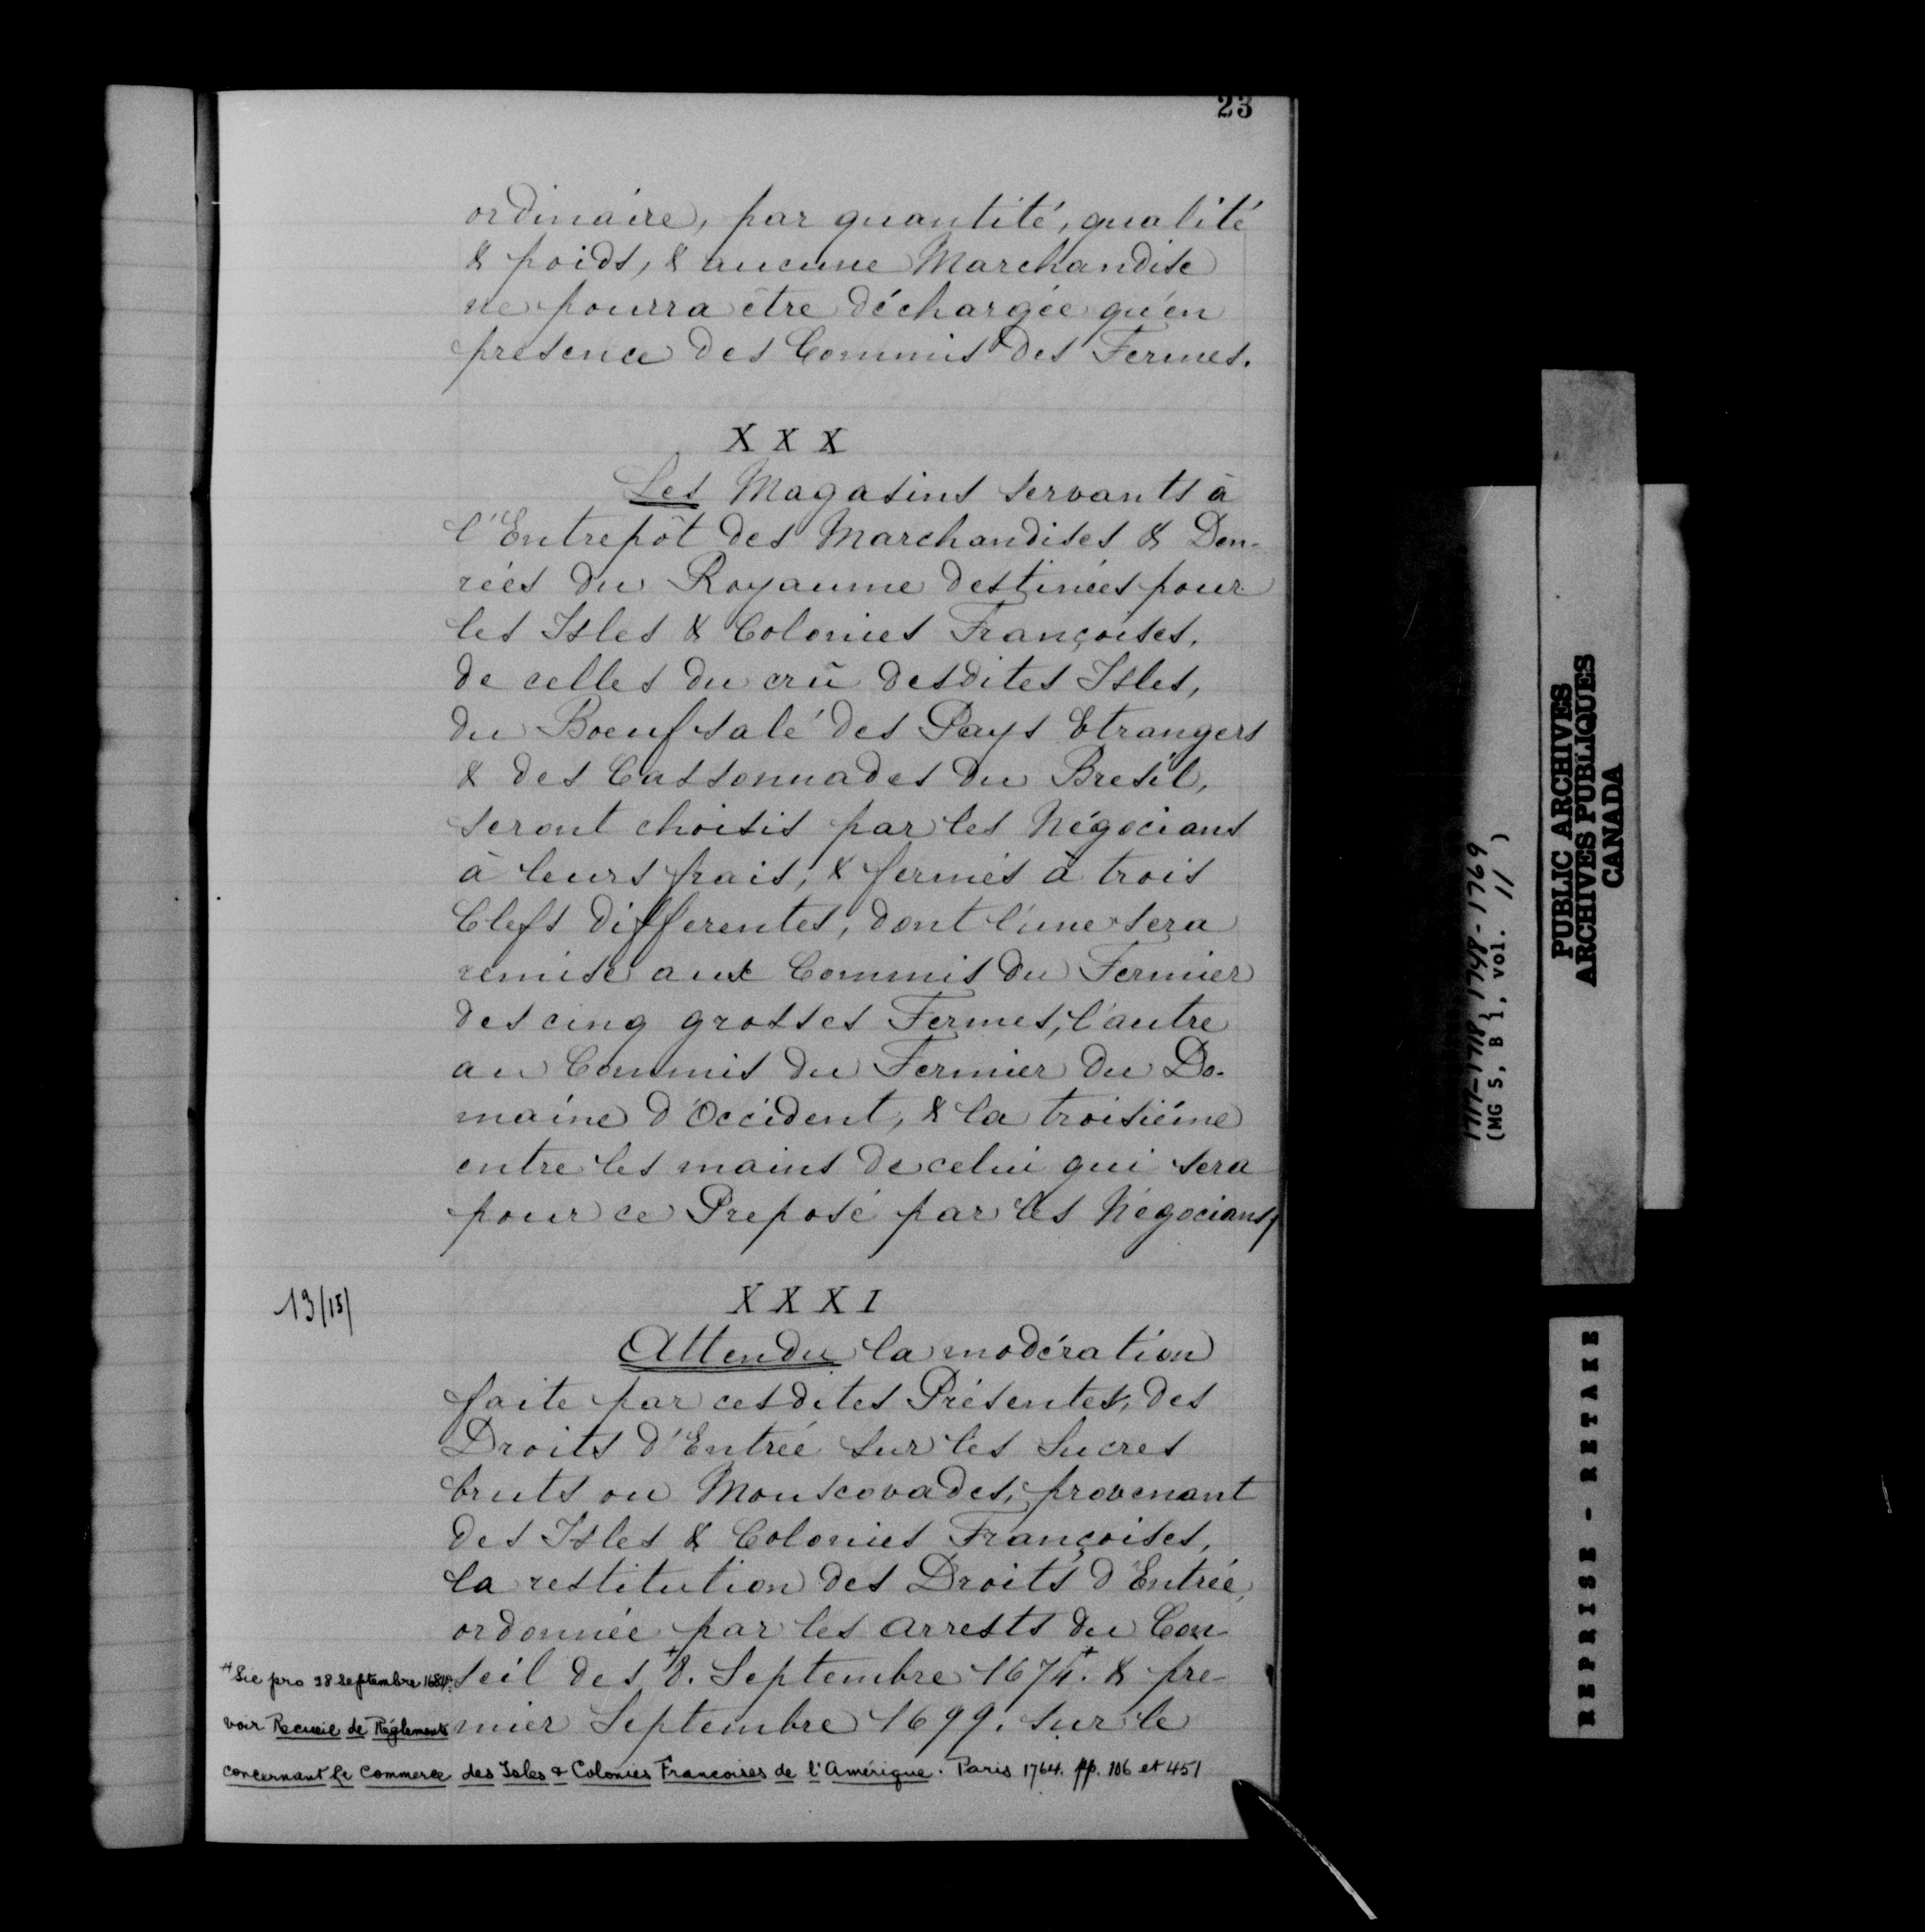 23
ordinaire, par quantité, qualité
& poids, & aucune Marchandise
ne pourra être déchargée qu'en
presence des Commis des Fermes.
XXX
Les Magasins servants à
l'Entrepôt des Marchandises & Den-
rées du Royaume destinées pour
les Isles & Colonies Françoises,
de celles du crû desdites Isles,
du Boeuf salé des Pays Etrangers
& des Cassonnades du Bresil,
seront choisis par les Négocians
à leurs frais, & fermés à trois
Clefs differentes, dont l'une sera
remise aux Commis du Fermier
des cinq grosses Fermes, l'autre
au Commis du Fermier du Do-
maine d'Occident, & la troisiéme
entre les mains de celui qui sera
pour ce Preposé par les Négocians
13/15/
XXXI
Attendu la modération
faite par cesdites Présentes, des
Droits d'Entrée sur les Sucres
bruts ou Mouscovades, provenant
des Isles & Colonies Françoises,
la restitution des Droits d'Entrée,
ordonnée par les arrests du Con-
seil des + 8. Septembre 1674.+ & pre-
mier Septembre 1699. sur le
+ Sic pro 28 Septembre 1684.
voir Recueil de Réglements
concernant le Commerce des Isles & Colonies Francoises de l'Amérique. Paris 1764. pp. 106 et 451
1717-1718, 1748-1769
(MG 5, B 1, vol. 11 )
PUBLIC ARCHIVES
ARCHIVES PUBLIQUES
CANADA
REPRISE - RETAKE